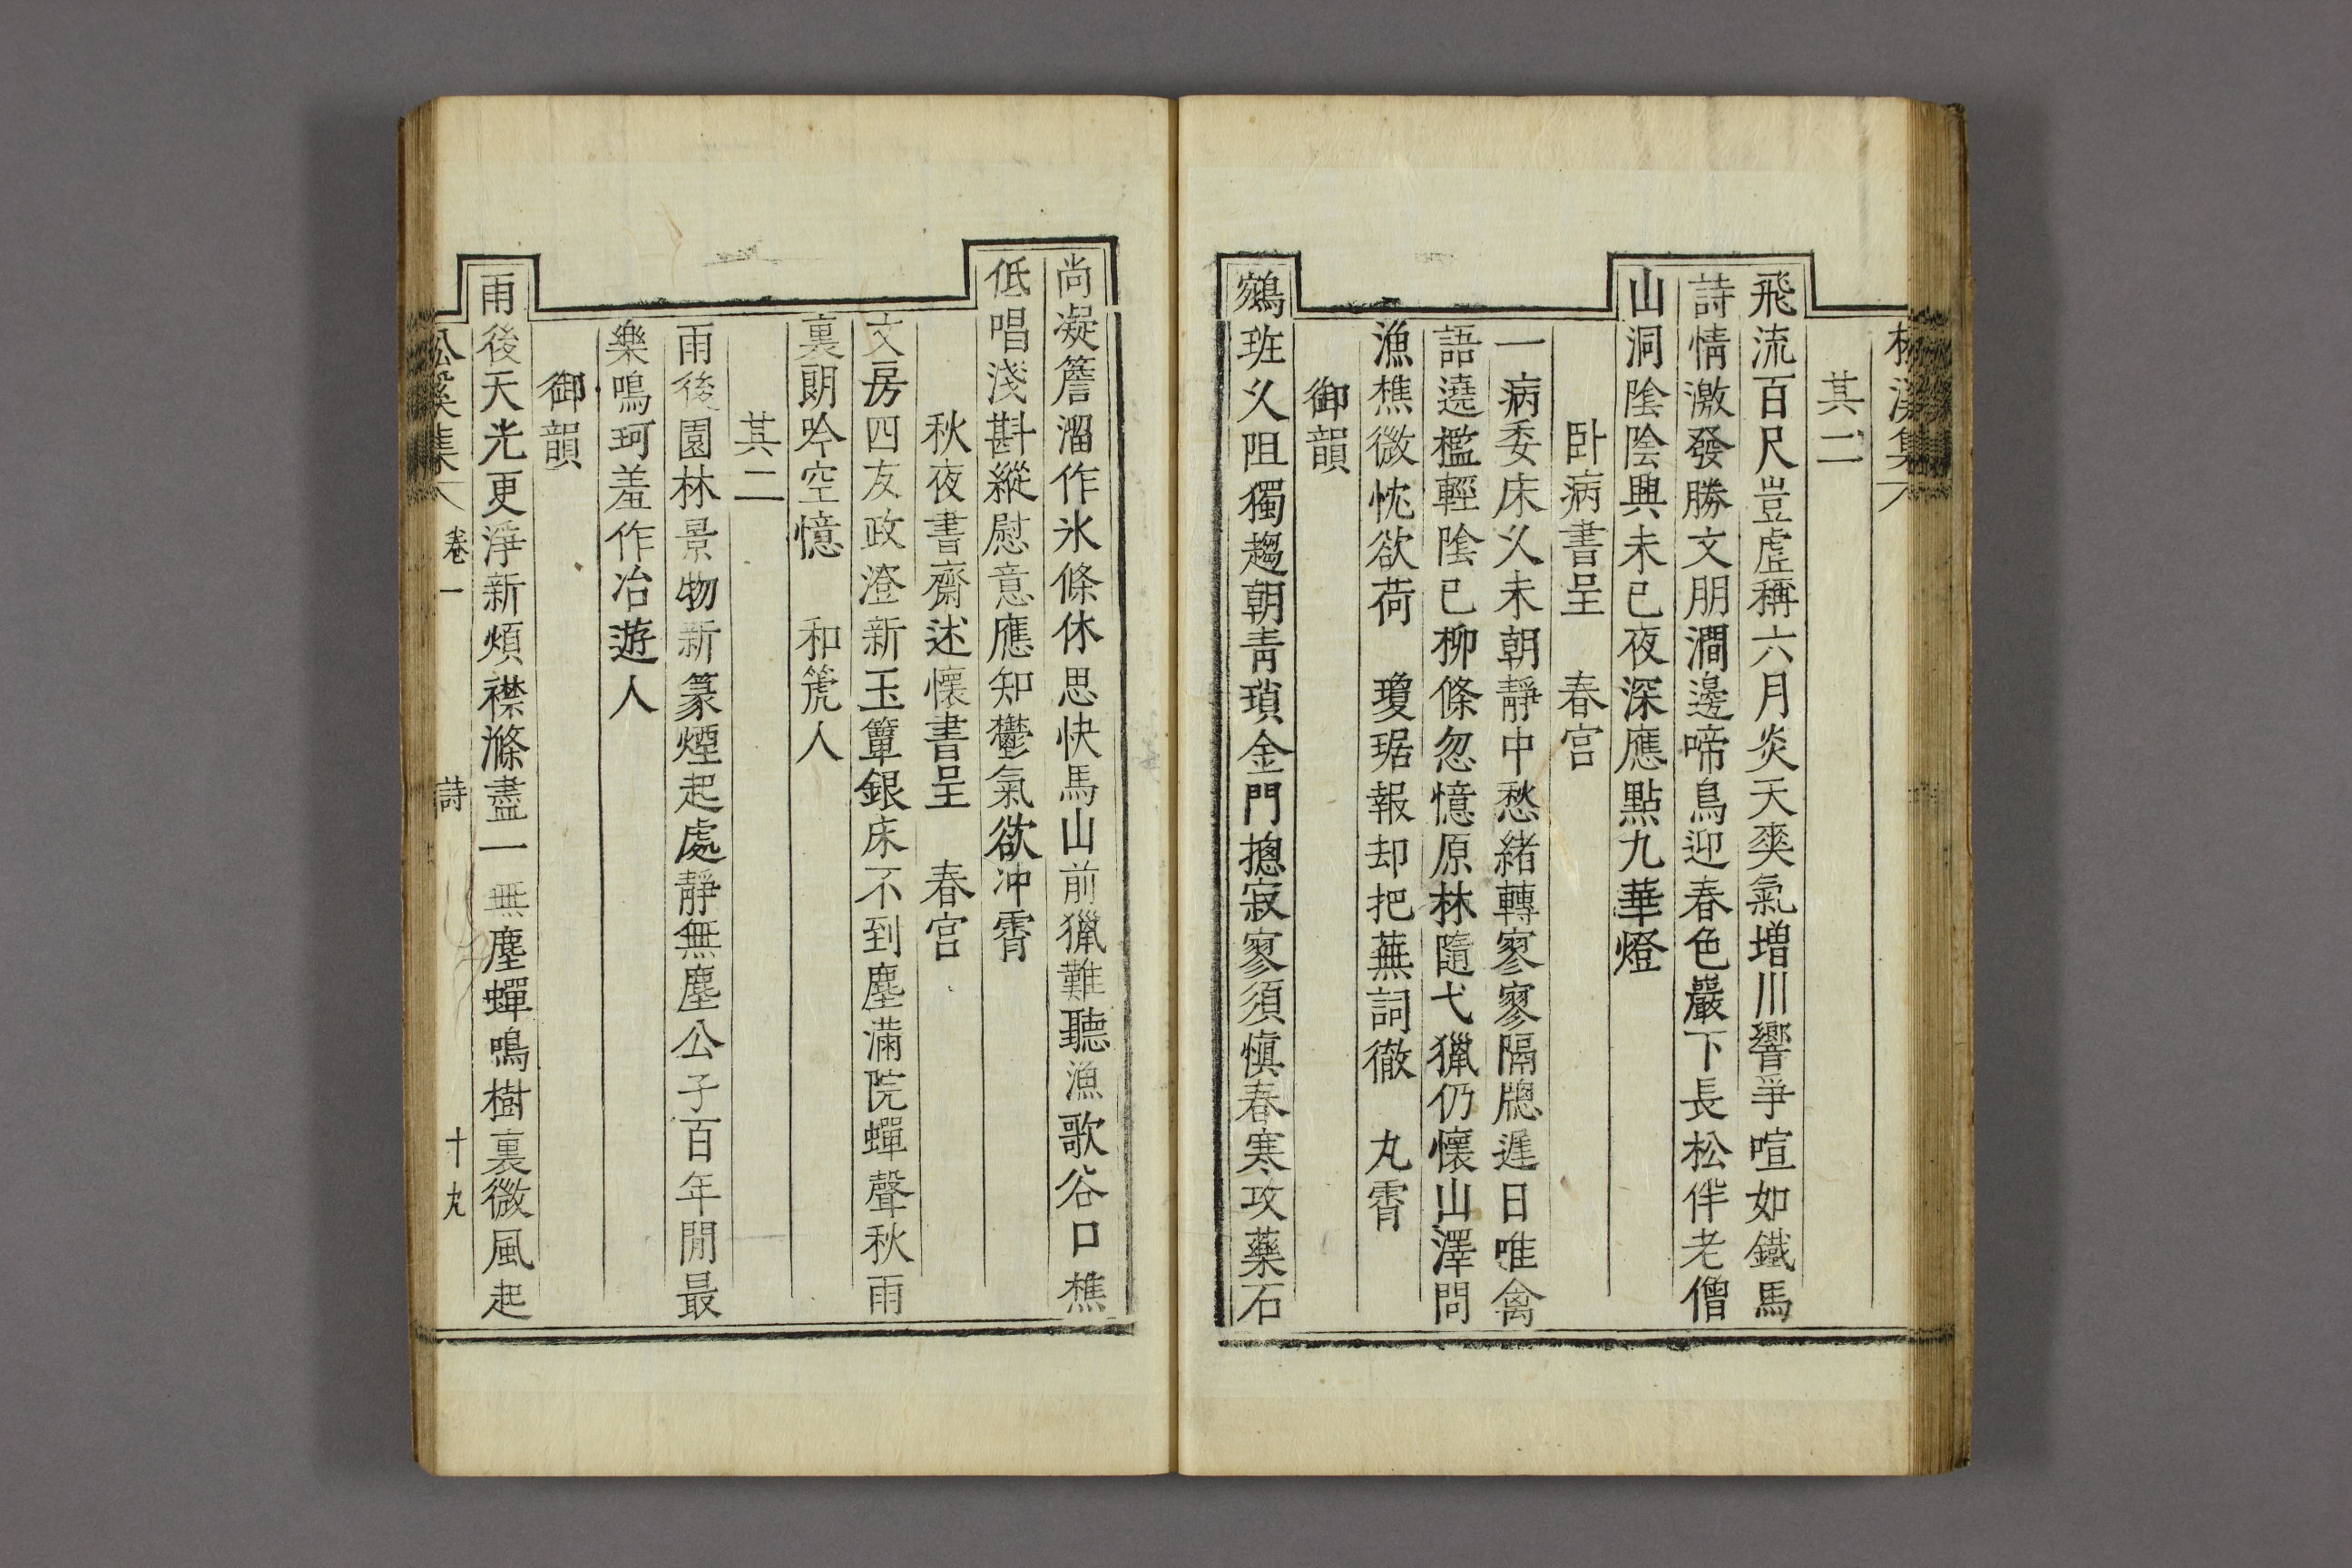 松溪集
其二
飛流百尺豈虛稱六月炎天奭氣增川響爭喧如鐵馬
詩情激發勝文朋澗邊啼鳥迎春色巖下長松伴老僧
山洞陰陰興未已夜深應點九華燈
卧病書呈 春宮
一病委床乆未朝靜中愁緒轉寥寥隔牕遲日唯禽
語遶檻輕陰已柳條忽憶原林隨弋獵仍懷山澤問
漁樵微忱欲荷 瓊琚報却把蕪詞徹 丸霄
御韻
鵷班乆阻獨趨朝靑瑣金門摠寂寥須愼春寒攻藥石
尚凝簷溜作氷條休思快馬山前獵難聽漁歌谷口樵
低唱淺斟縱慰意應知鬱氣欲冲霄
秋夜書齋述懷書呈 春宮
文房四友政澄新玉簟銀床不到塵滿院蟬聲秋雨
裏朗吟空憶 和箎人
其二
雨後園林景物新篆煙起處靜無塵公子百年閒最
樂鳴珂羞作冶遊人
御韻
雨後天光更淨新煩襟滌盡一無塵蟬鳴樹裏微風起
松溪集 卷一 詩 十九